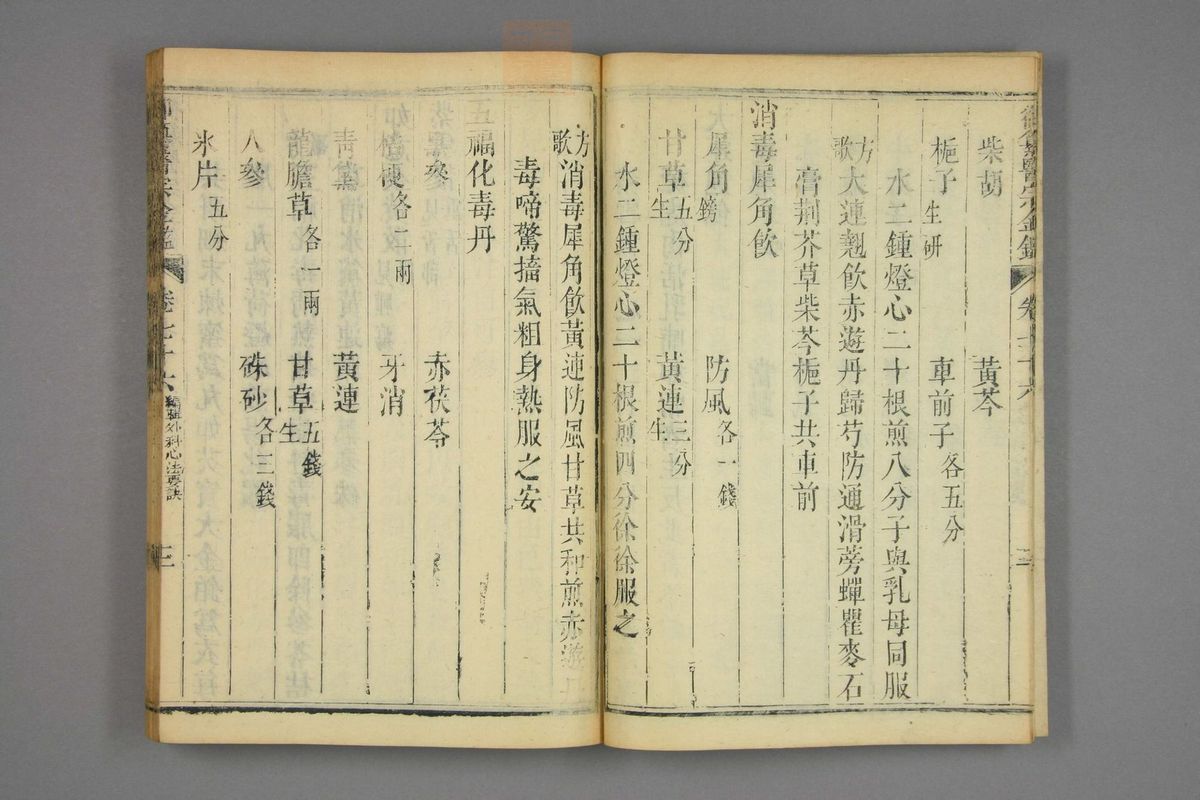 柴胡　黃芩
梔子生研　車前子各五分
水二鍾燈心二十根煎八分子與乳母同服
方歌　大連翹飲赤遊丹歸芍防通滑蒡蟬瞿麥石
膏荆芥草柴芩梔子共車前
消毒犀角飲
犀角鎊　防風各一錢
甘草五分生　黃連三分生
水二鍾燈心二十根煎四分徐徐服之
方歌　消毒犀角飲黃連防風甘草共和煎赤遊
毒啼驚搐氣粗身熱服之安
五福化毒丹
參　赤茯苓
桔梗各二兩　牙消
青黛　黃連
龍膽草各一兩　甘草五錢生
人參　硃砂各三錢
氷片五分
醫宗金鑑　卷七十六　編輯外科心法要訣